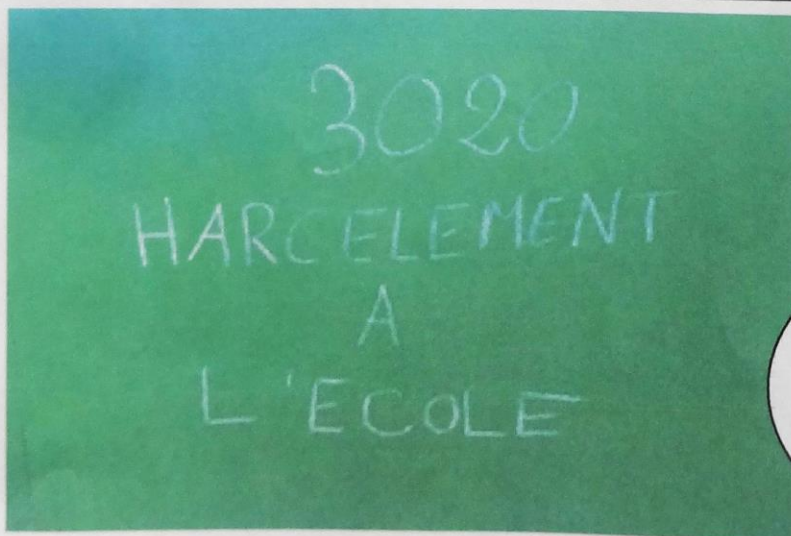 3020
HARCELEMENT
A
L'ECOLE